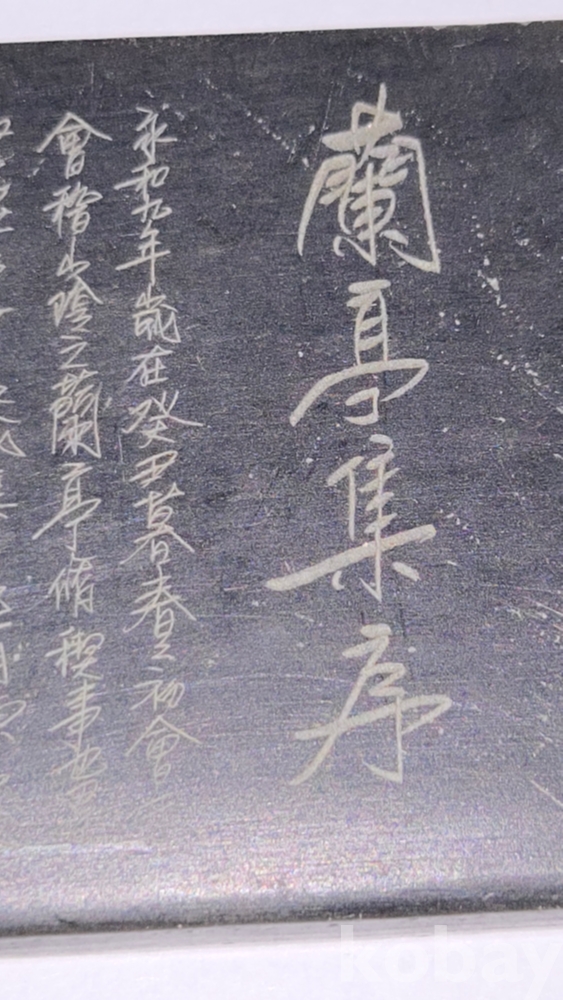 蘭亭集序
永和九年歲在癸丑暮春之初會
會稽山陰之蘭亭脩禊事
kobay